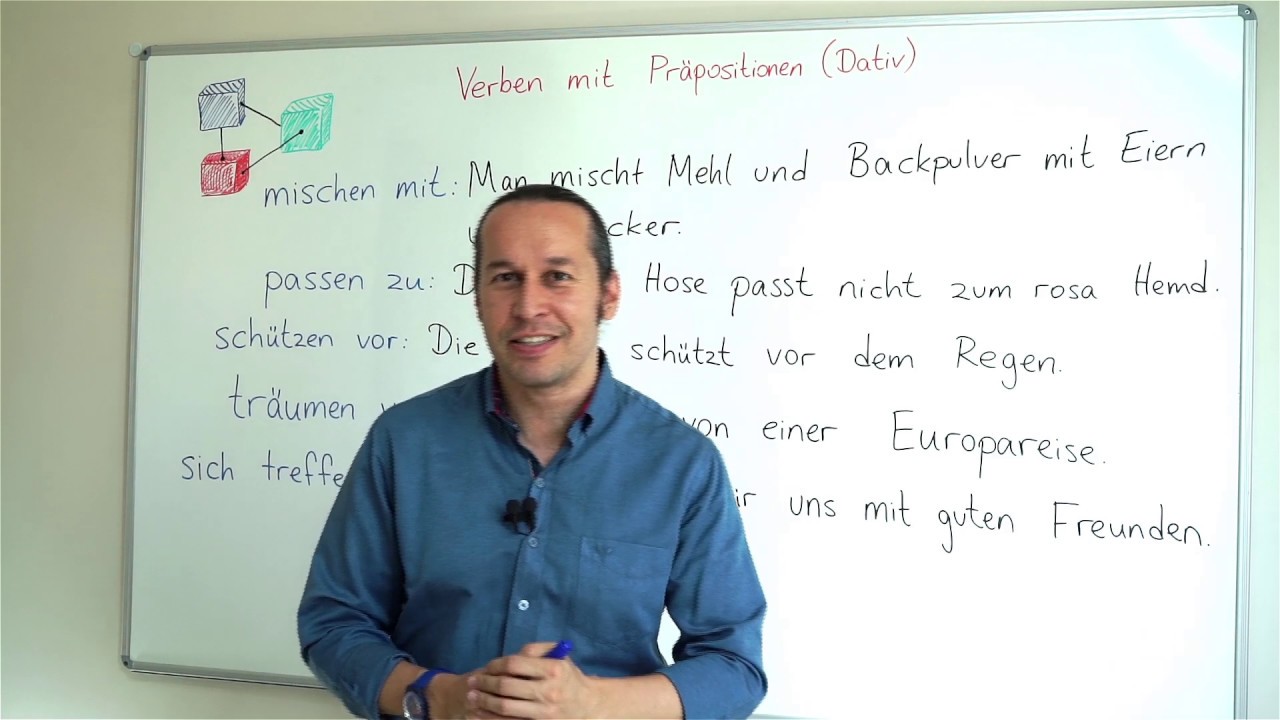 Verben mit Präpositionen (Dativ)
mischen mit: Man mischt Mehl und Backpulver mit Eiern
cker.
passen zu: D Hose passt nicht zum rosa Hemd.
schützen vor: Die schützt vor dem Regen.
träumen von einer Europareise.
sich treffe ir uns mit guten Freunden.